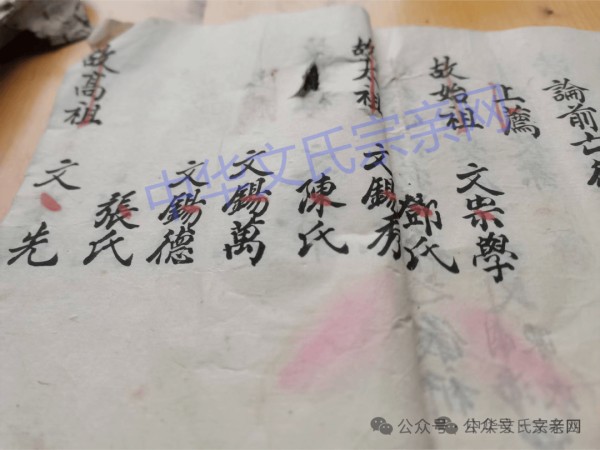 論前亡
上薦
文崇學
故始祖
鄧氏
故太祖
文錫秀
陳氏
文錫萬
文錫德
故高祖
張氏
文先
中华文氏宗亲网
公众号 中华文氏宗亲网